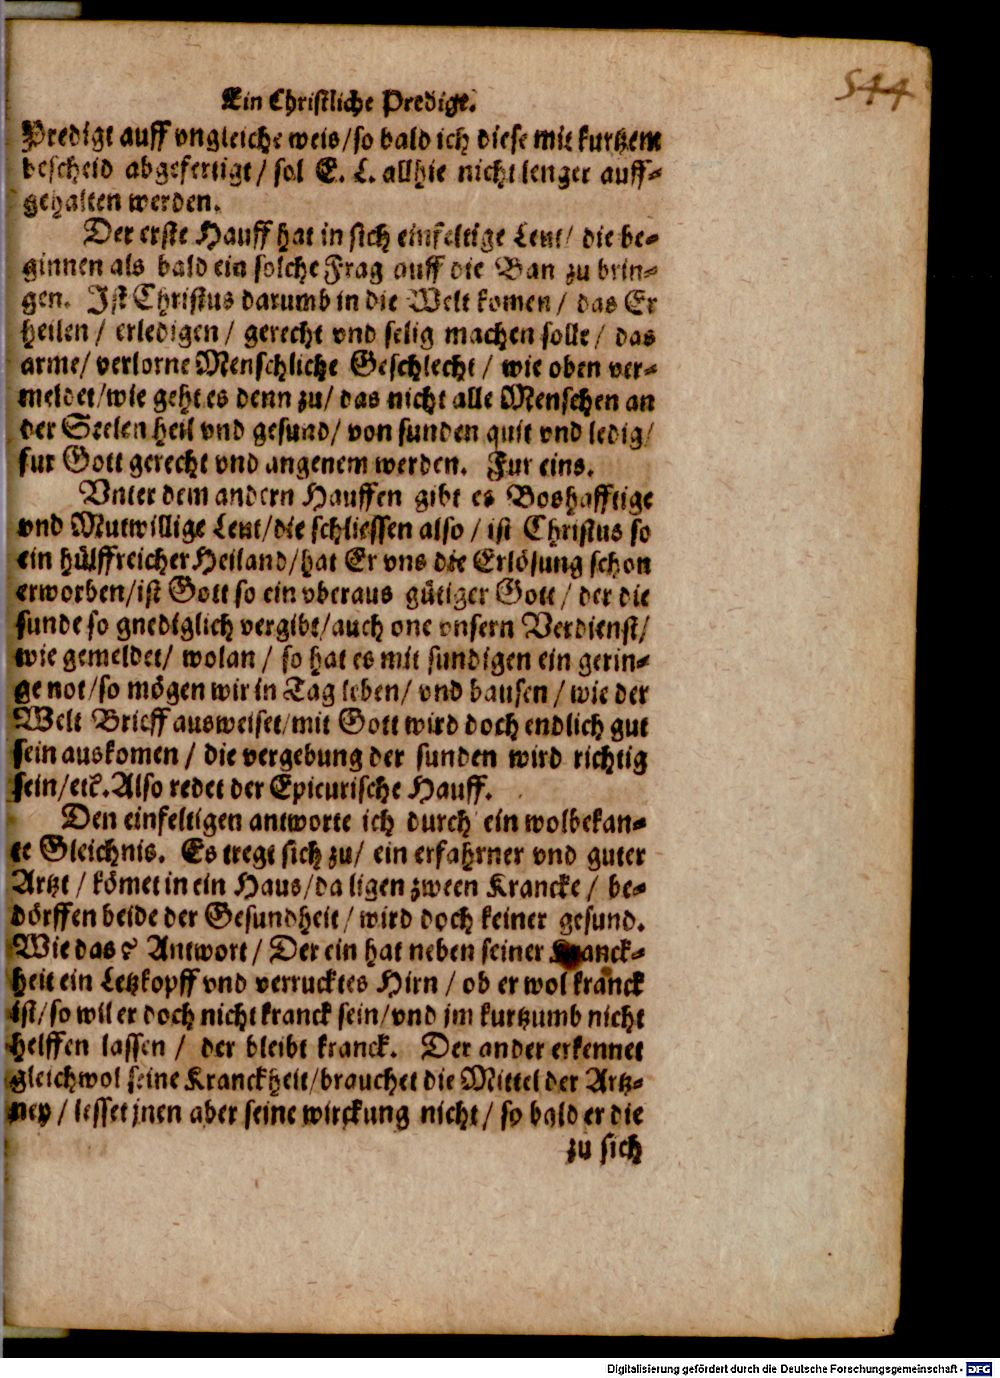 544
Ein Christliche Predigt.
Predigt auff vngleiche weis/so bald ich diese mit kurtzem
bescheid abgefertigt/ sol E. L. allhie nicht lenger auff-
gehalten werden.
Der erste Hauff hat in sich einfeltige Leut/ die be-
ginnen als bald ein solche Frag auff die Ban zu brin-
gen. Ist Christus darumb in die Welt komen/ das Er
heilen/ erledigen/ gerecht vnd selig machen solle/ das
arme/ verlorne Menschliche Geschlecht/ wie oben ver-
meldet/wie geht es denn zu/ das nicht alle Menschen an
der Seelen heil vnd gesund/ von sunden quit vnd ledig/
fur Gott gerecht vnd angenem werden. Fur eins.
Vnter dem andern Hauffen gibt es Boshafftige
vnd Mutwillige Leut/die schliessen also/ ist Christus so
ein hülffreicher Heiland/hat Er vns die Erlösung schon
erworben/ist Gott so ein vberaus gütiger Gott/ der die
sunde so gnediglich vergibt/auch one vnsern Verdienst/
wie gemeldet/ wolan/ so hat es mit sundigen ein gerin-
ge not/so mögen wir in Tag leben/ vnd bausen/ wie der
Welt Brieff ausweiset/mit Gott wird doch endlich gut
sein auskomen/ die vergebung der sunden wird richtig
sein/etc. Also redet der Epicurische Hauff.
Den einfeltigen antworte ich durch ein wolbekan-
te Gleichnis. Es tregt sich zu/ ein erfahrner vnd guter
Artzt/ kömet in ein Haus/da ligen zween Krancke/ be-
dörffen beide der Gesundheit/ wird doch keiner gesund.
Wie das? Antwort/ Der ein hat neben seiner Kranck-
heit ein Letzkopff vnd verrucktes Hirn/ ob er wol kranck
ist/so wil er doch nicht kranck sein/vnd jm kurtzumb nicht
helffen lassen/ der bleibt kranck. Der ander erkennet
gleichwol seine Kranckheit/brauchet die Mittel der Artz-
ney/ lesset jnen aber seine wirckung nicht/ so bald er die
zu sich
Digitalisierung gefördert durch die Deutsche Forschungsgemeinschaft - DFG